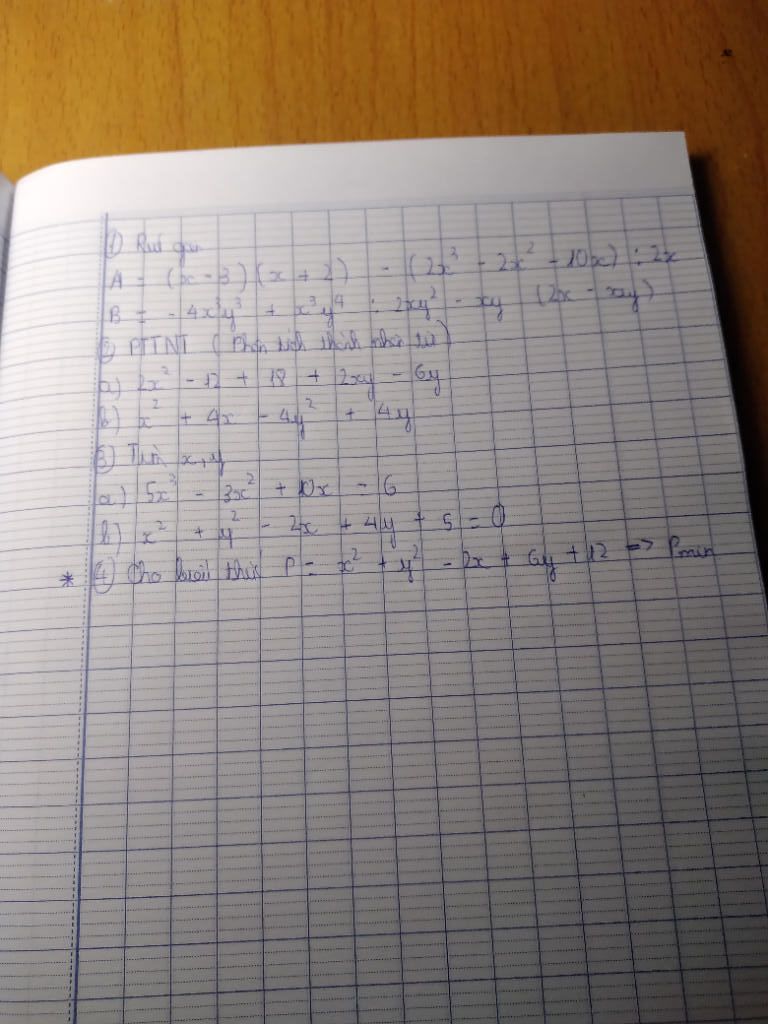 ① Rút gọn
A = (x - 3)(x + 2) - (2x³ - 2x² - 10x) : 2x
B = - 4x³y³ + x³y⁴ : 2xy² - xy (2x - xy)
② PTTNT (Phân tích thành nhân tử)
a) 2x² - 12 + 18 + 2xy - 6y
b) x² + 4x - 4y² + 4y
③ Tìm x, y
a) 5x³ - 3x² + 10x = 6
b) x² + y² - 2x + 4y + 5 = 0
* ④ Cho biểu thức P = x² + y² - 2x + 6y + 12 => Pmin